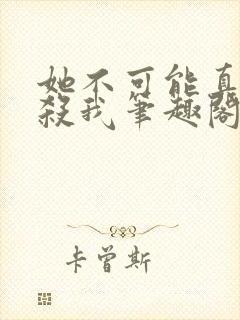 她不可能真
殺我筆趣閣
卡曾斯